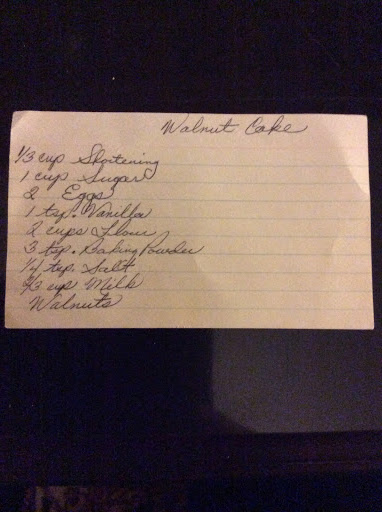 Walnut Cake
1/3 cup Shortening
1 cup Sugar
2 Eggs
1 tsp. Vanilla
2 cups Flour
3 tsp. Baking Powder
1/4 tsp. Salt
2/3 cup Milk
Walnuts